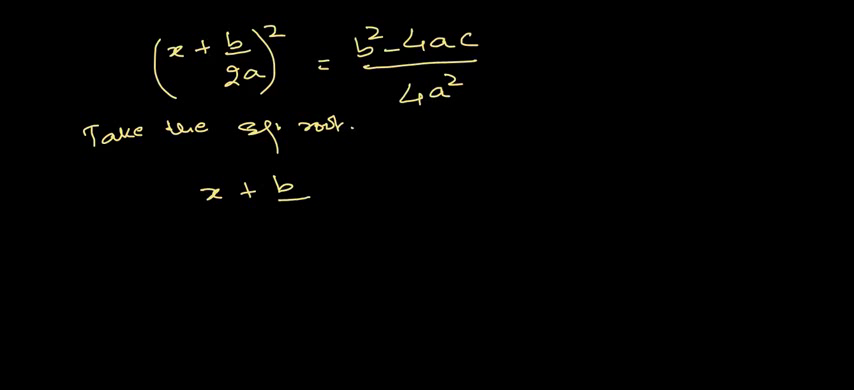 (x + b/2a)² = b² - 4ac / 4a²
Take the sq. root.
x + b